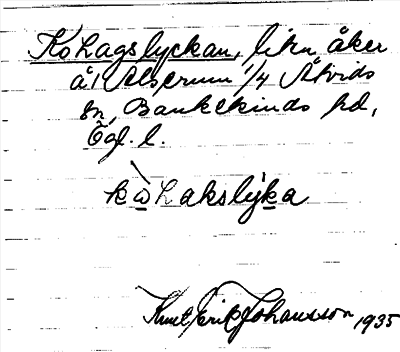 Kohagslyckan, liten åker
å 1 Alserum 1/4 Åtvids
sn, Bankekinds hd,
Ögl. l.
kωhakslỳka
Knut Erik Johansson 1935